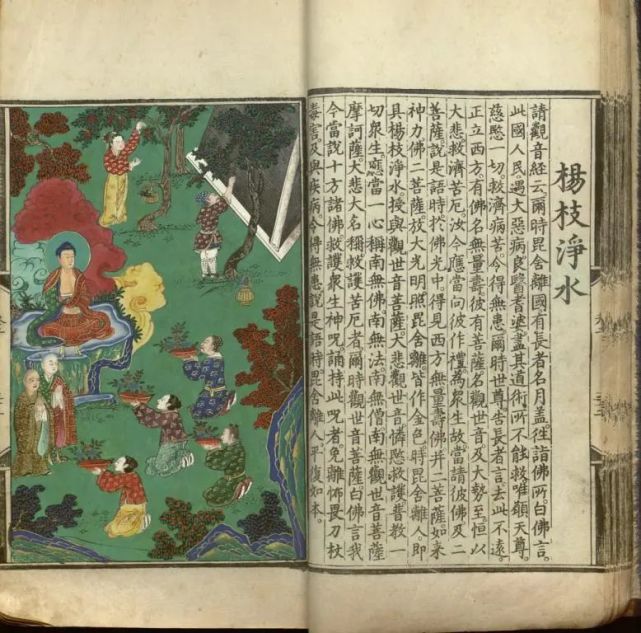 楊枝淨水
請觀音經云爾時毘舍離國有長者名月盖往詣佛所白佛言
此國人民遇大惡病良醫耆婆盡其道術所不能救唯願天尊
慈愍一切救濟病苦令得無患爾時世尊告長者言去此不遠
正立西方有佛名無量壽彼有菩薩名觀世音及大勢至恒以
大悲救濟苦厄汝今應當向彼作禮為眾生故當請彼佛及二
菩薩說是語時於佛光中得見西方無量壽佛并二菩薩如來
神力佛二菩薩放大光明照毘舍離皆作金色時毘舍離人即
具楊枝淨水授與觀世音菩薩大悲觀世音憐愍救護普教一
切眾生應當一心稱南無佛南無法南無僧南無觀世音菩薩
摩訶薩大悲大名稱救護苦厄者爾時觀世音菩薩白佛言我
今當說十方諸佛救護眾生神呪誦持此呪者免離怖畏刀杖
毒害及與疾病令得無患說是語時毘舍離人平復如本